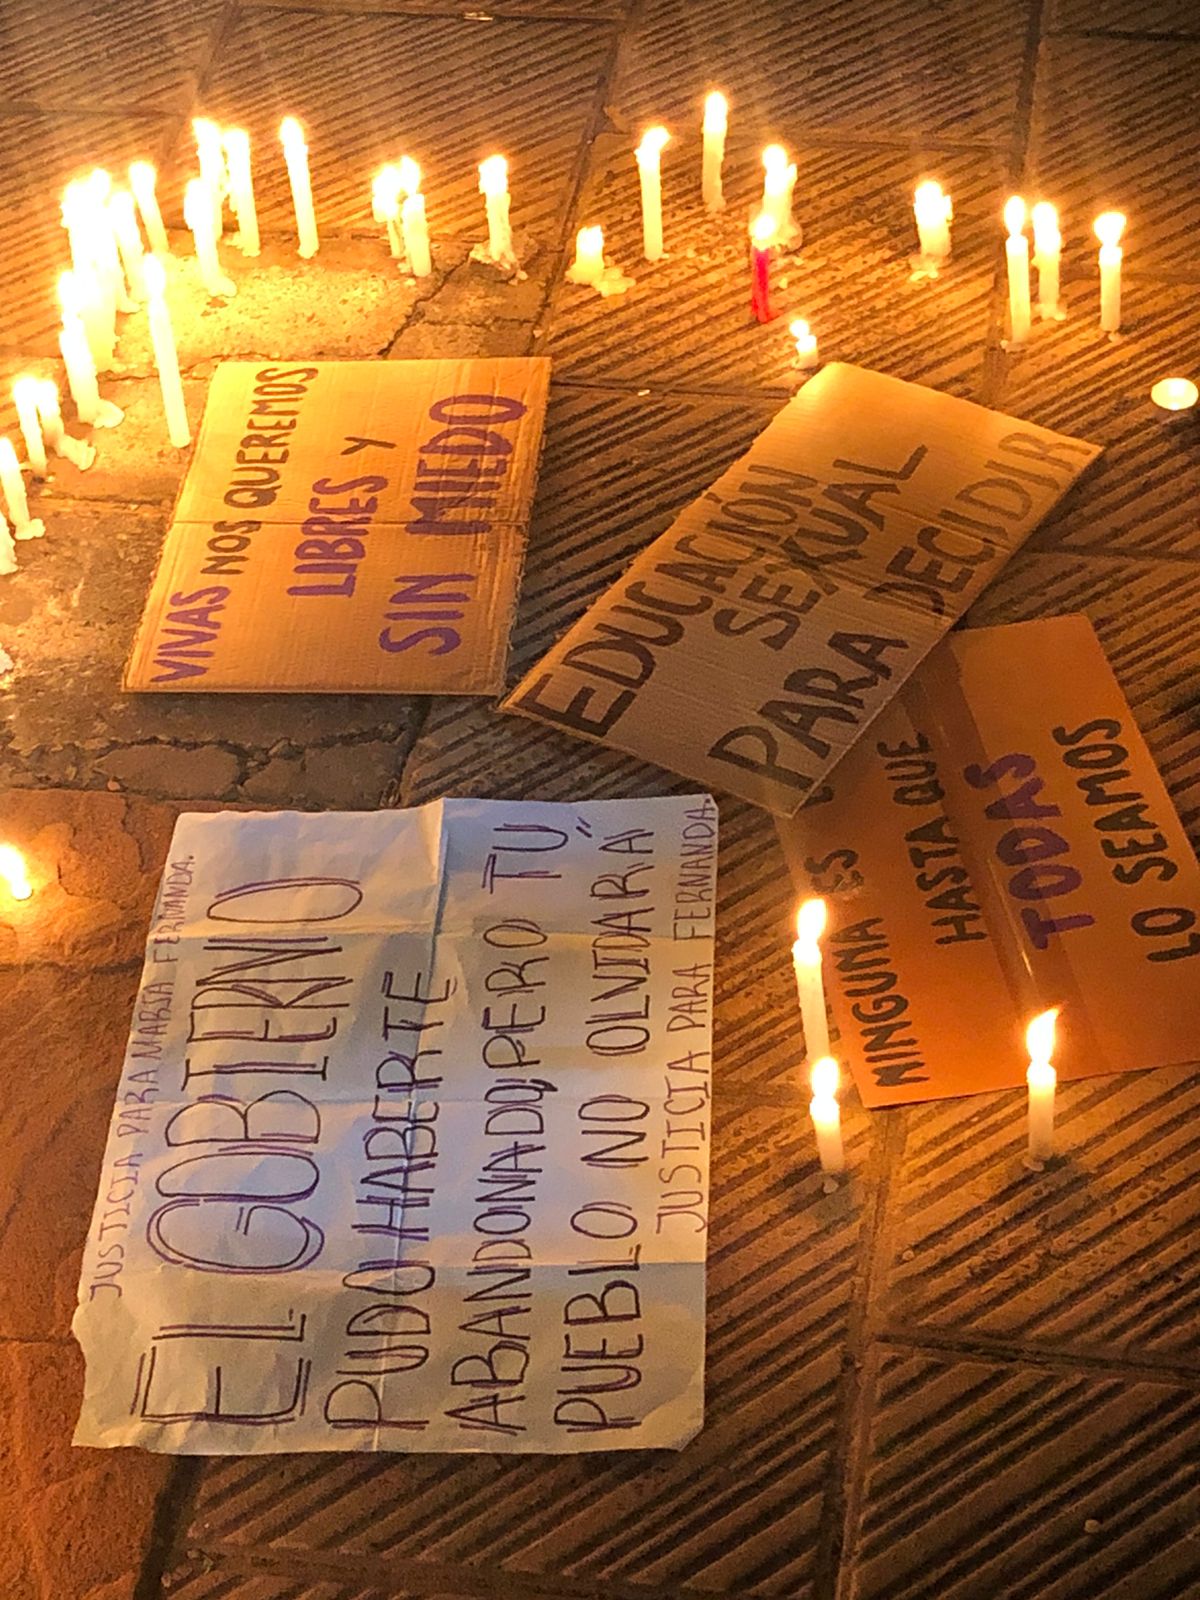 VIVAS NOS QUEREMOS
LIBRES Y
SIN MIEDO
EDUCACIÓN
SEXUAL
PARA DECIDIR
NINGUNA ES
HASTA QUE
TODAS
LO SEAMOS
JUSTICIA PARA MARIA FERNANDA.
EL GOBIERNO
PUDO HABERTE
ABANDONADO, PERO TU
PUEBLO NO OLVIDARÁ"
JUSTICIA PARA FERNANDA.